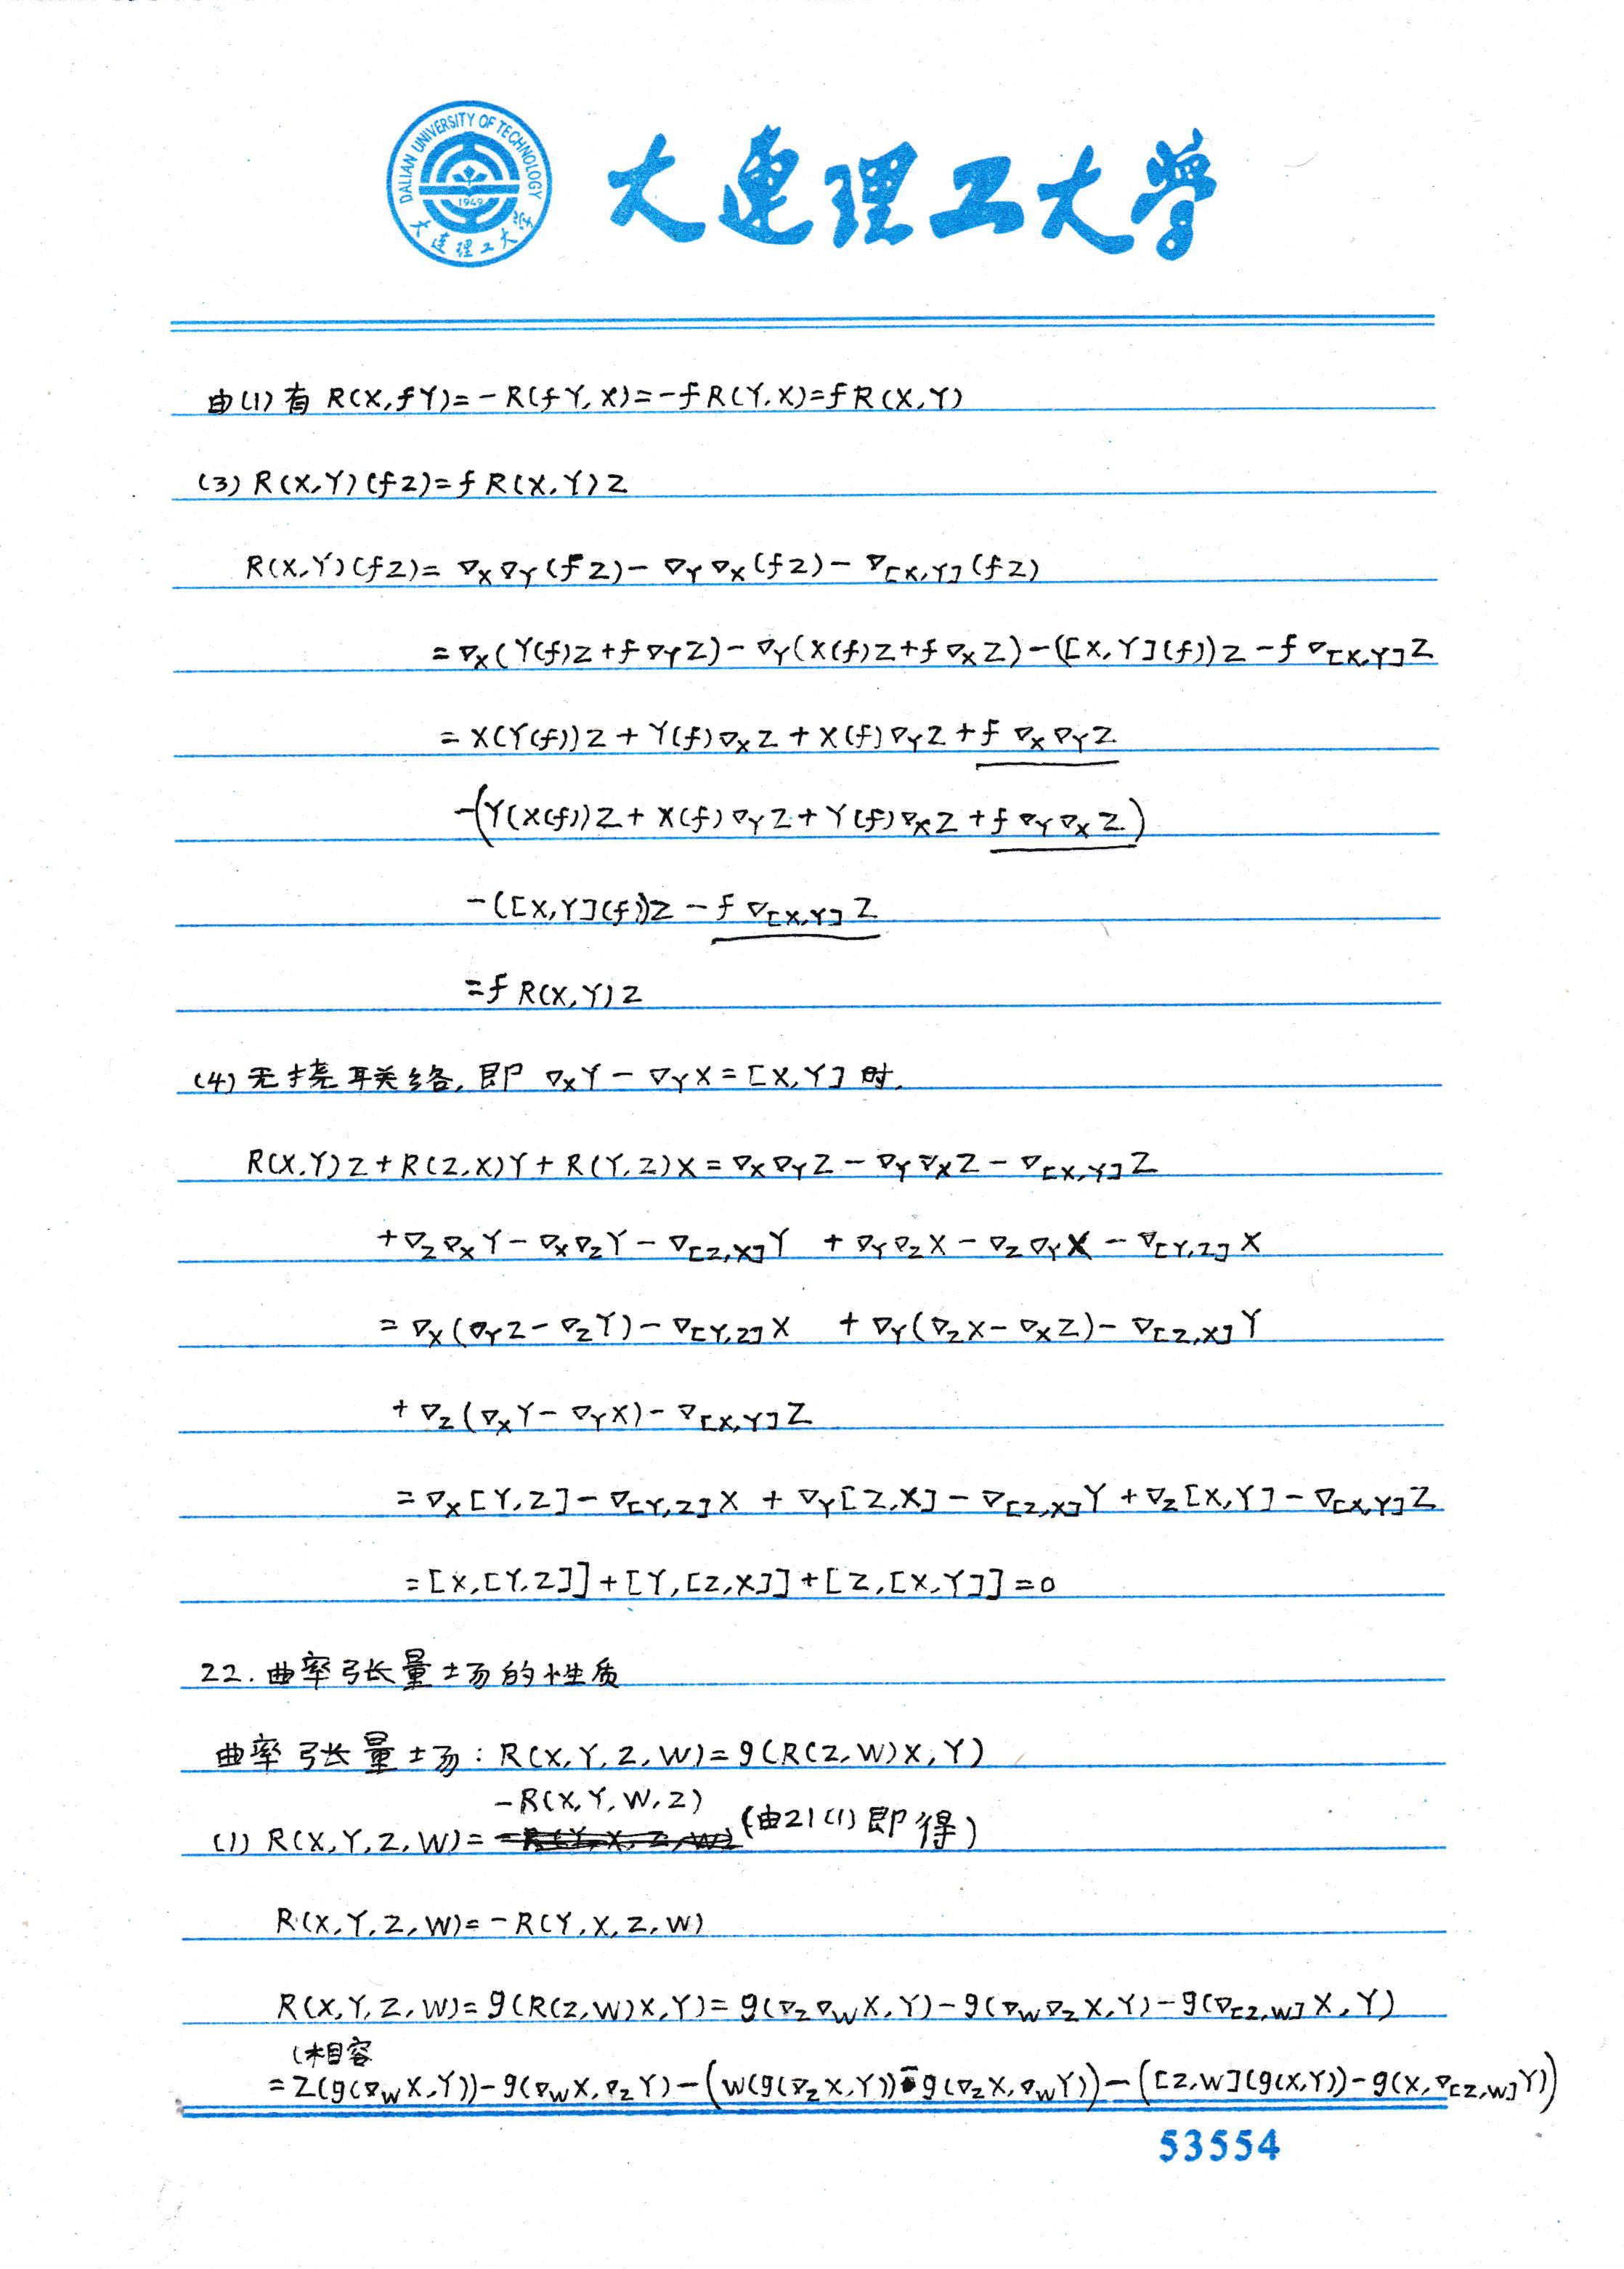 DALIAN UNIVERSITY OF TECHNOLOGY
1949
大连理工大学
大连理工大学
由(1)有 R(X,fY)=-R(fY,X)=-fR(Y,X)=fR(X,Y)
(3) R(X,Y)(fZ)=fR(X,Y)Z
R(X,Y)(fZ)=∇_X∇_Y(fZ)-∇_Y∇_X(fZ)-∇_[X,Y](fZ)
=∇_X(Y(f)Z+f∇_YZ)-∇_Y(X(f)Z+f∇_XZ)-([X,Y](f))Z-f∇_[X,Y]Z
=X(Y(f))Z+Y(f)∇_XZ+X(f)∇_YZ+f∇_X∇_YZ
-(Y(X(f))Z+X(f)∇_YZ+Y(f)∇_XZ+f∇_Y∇_XZ)
-([X,Y](f))Z-f∇_[X,Y]Z
=fR(X,Y)Z
(4) 无挠联络,即 ∇_XY-∇_YX=[X,Y]时,
R(X,Y)Z+R(Z,X)Y+R(Y,Z)X=∇_X∇_YZ-∇_Y∇_XZ-∇_[X,Y]Z
+∇_Z∇_XY-∇_X∇_ZY-∇_[Z,X]Y +∇_Y∇_ZX-∇_Z∇_YX-∇_[Y,Z]X
=∇_X(∇_YZ-∇_ZY)-∇_[Y,Z]X +∇_Y(∇_ZX-∇_XZ)-∇_[Z,X]Y
+∇_Z(∇_XY-∇_YX)-∇_[X,Y]Z
=∇_X[Y,Z]-∇_[Y,Z]X+∇_Y[Z,X]-∇_[Z,X]Y+∇_Z[X,Y]-∇_[X,Y]Z
=[X,[Y,Z]]+[Y,[Z,X]]+[Z,[X,Y]]=0
22.曲率张量场的性质
曲率张量场:R(X,Y,Z,W)=g(R(Z,W)X,Y)
(1) R(X,Y,Z,W)=-R(X,Y,W,Z) (由21(1)即得)
R(X,Y,Z,W)=-R(Y,X,Z,W)
R(X,Y,Z,W)=g(R(Z,W)X,Y)=g(∇_Z∇_WX,Y)-g(∇_W∇_ZX,Y)-g(∇_[Z,W]X,Y)
(相容
=Z(g(∇_WX,Y))-g(∇_WX,∇_ZY)-(W(g(∇_ZX,Y))-g(∇_ZX,∇_WY))-([Z,W](g(X,Y))-g(X,∇_[Z,W]Y))
53554